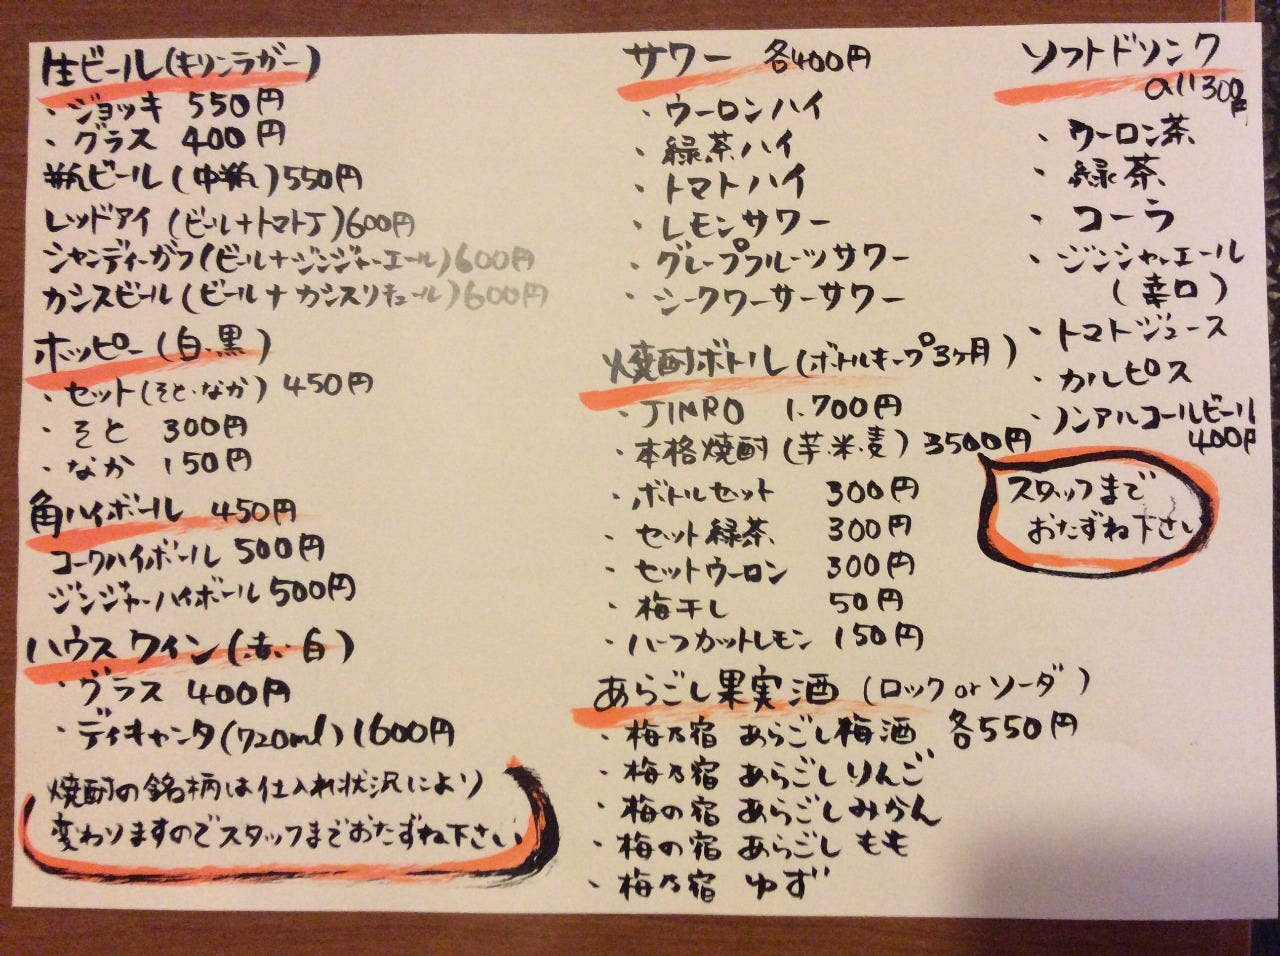 生ビール(キリンラガー)
・ジョッキ 550円
・グラス 400円
瓶ビール(中瓶)550円
レッドアイ(ビール+トマトJ)600円
シャンディーガフ(ビール+ジンジャーエール)600円
カシスビール(ビール+カシスリキュール)600円
ホッピー(白・黒)
・セット(そと・なか) 450円
・そと 300円
・なか 150円
角ハイボール 450円
コークハイボール 500円
ジンジャーハイボール 500円
ハウスワイン(赤・白)
・グラス 400円
・デキャンタ(720ml)1600円
焼酎の銘柄は仕入れ状況により
変わりますのでスタッフまでおたずね下さい
サワー 各400円
・ウーロンハイ
・緑茶ハイ
・トマトハイ
・レモンサワー
・グレープフルーツサワー
・シークワーサーサワー
焼酎ボトル(ボトルキープ3ヶ月)
・JINRO 1.700円
・本格焼酎(芋・米・麦)3500円
・ボトルセット 300円
・セット緑茶 300円
・セットウーロン 300円
・梅干し 50円
・ハーフカットレモン 150円
あらごし果実酒(ロックorソーダ)
・梅乃宿 あらごし梅酒 各550円
・梅乃宿 あらごしりんご
・梅の宿 あらごしみかん
・梅の宿 あらごしもも
・梅乃宿 ゆず
ソフトドリンク
all300円
・ウーロン茶
・緑茶
・コーラ
・ジンジャーエール
(辛口)
・トマトジュース
・カルピス
・ノンアルコールビール
400円
スタッフまで
おたずね下さい